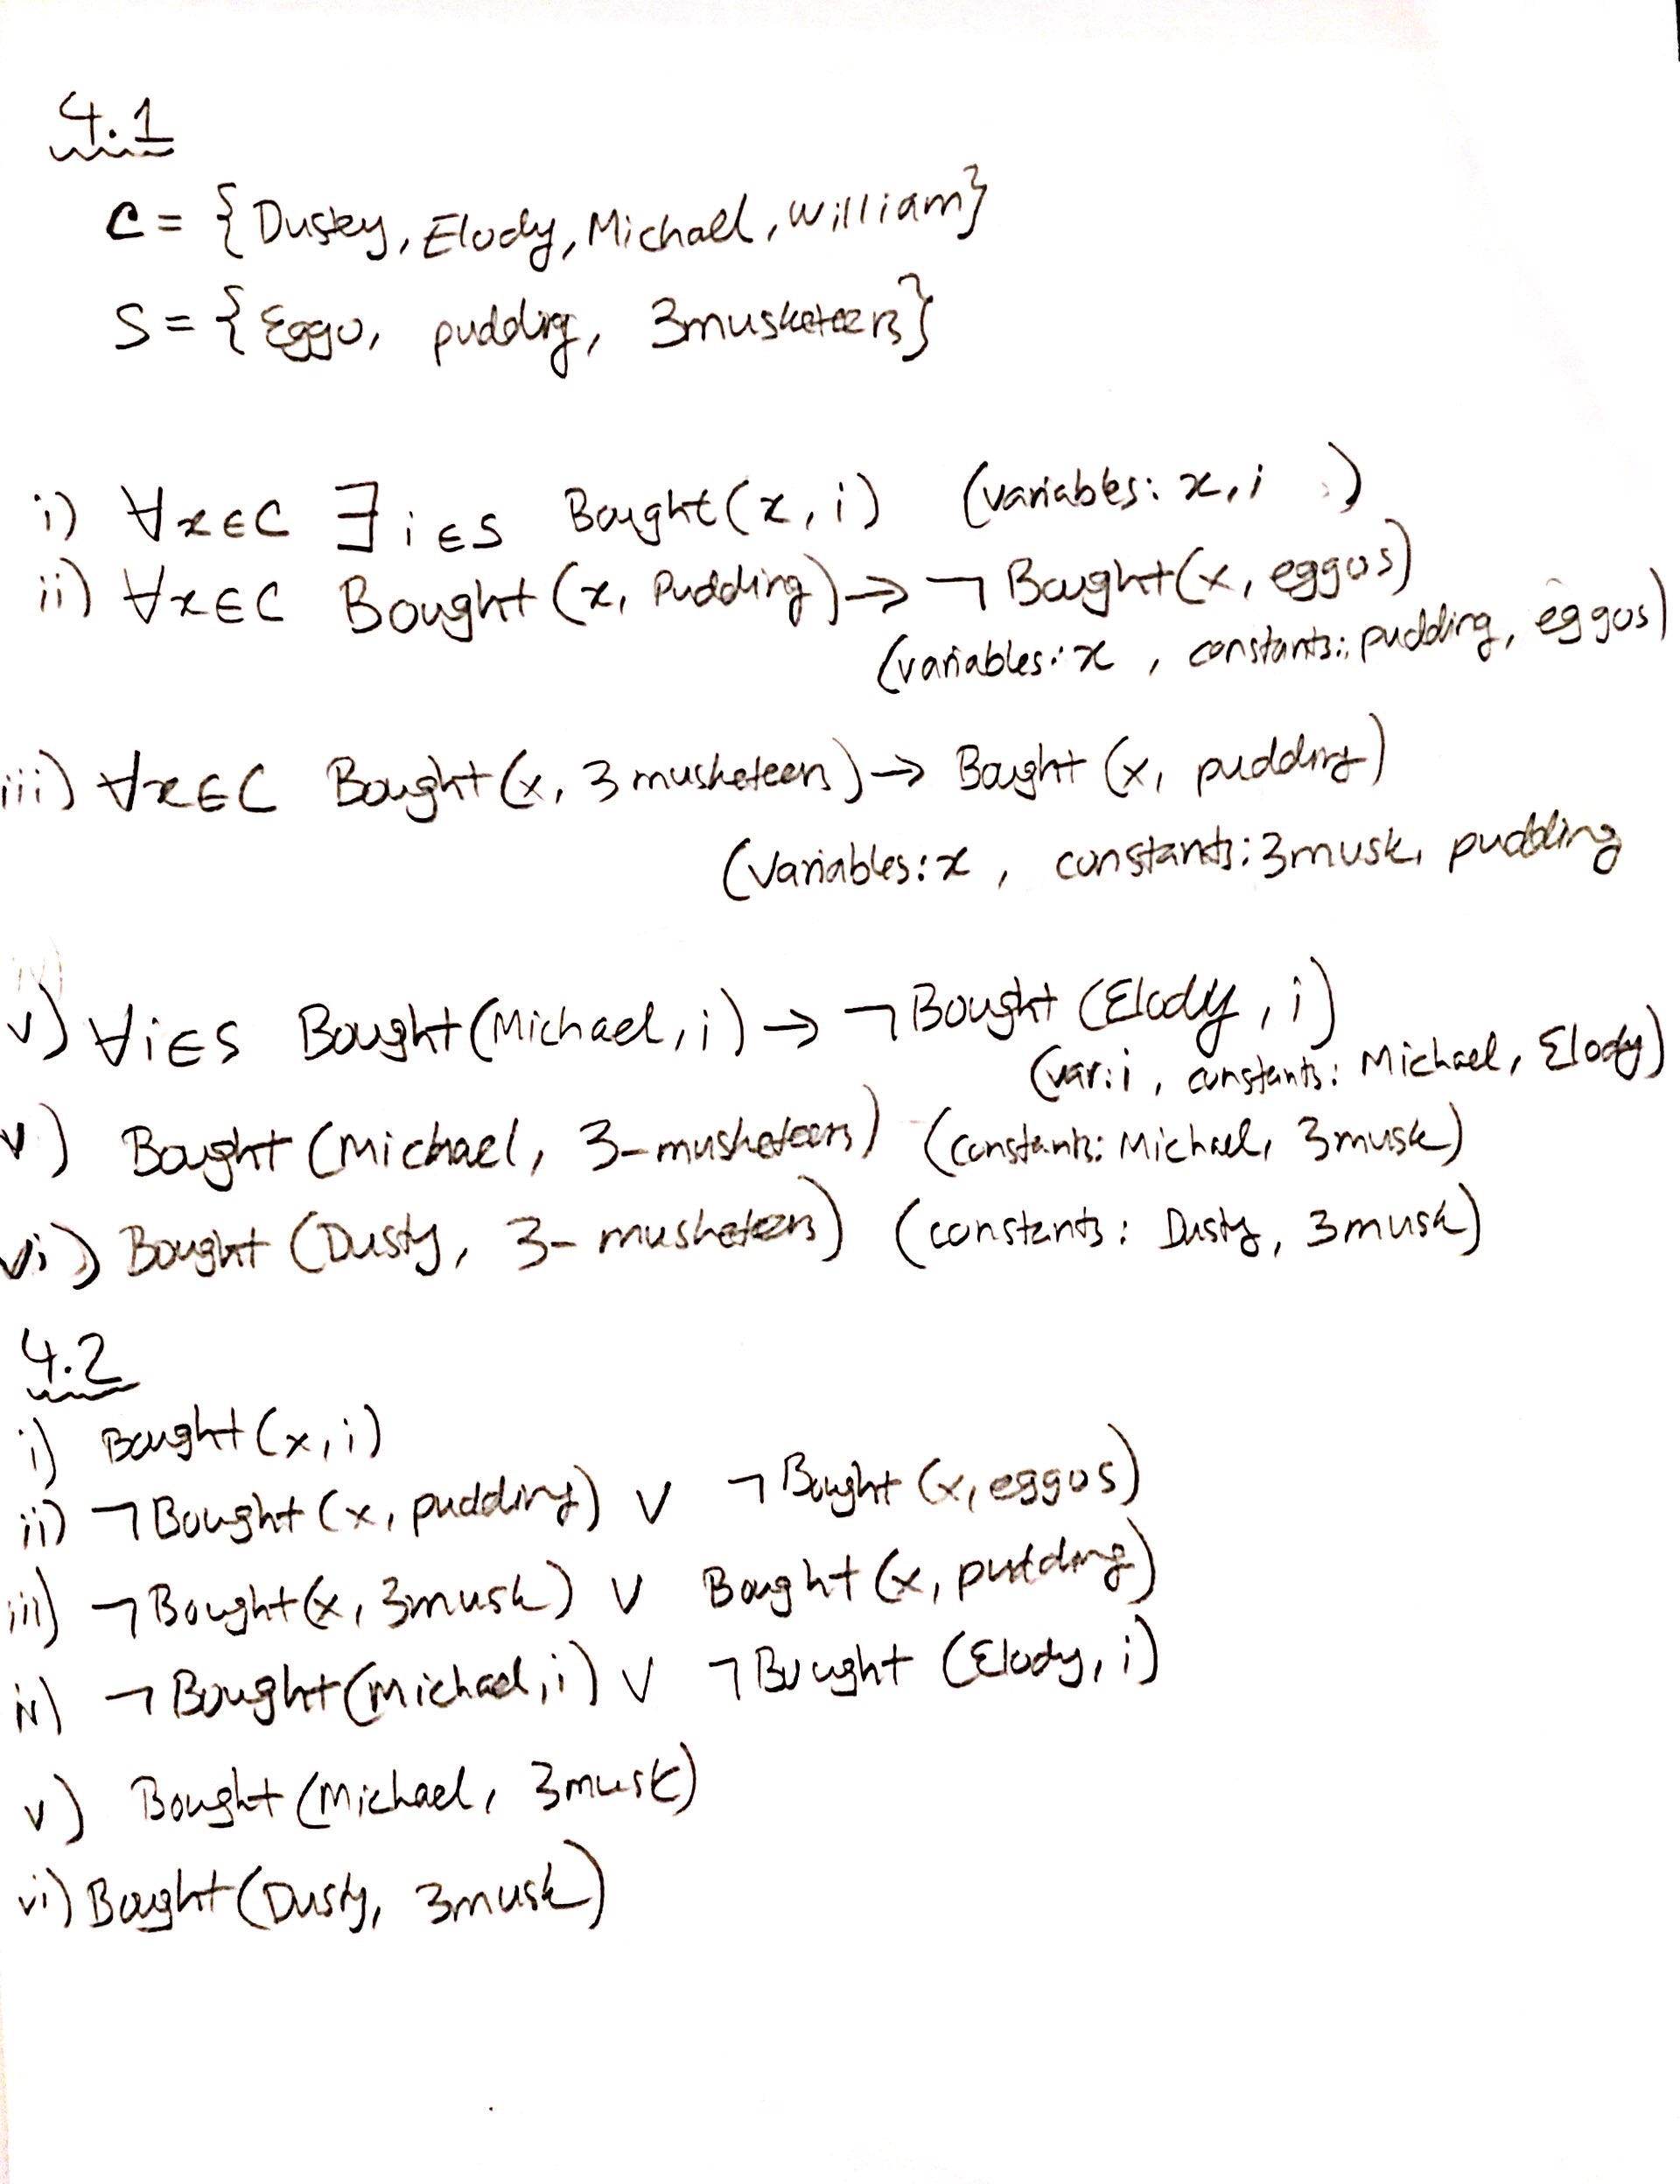 4.1
C = {Dusty, Elody, Michael, William}
S = {Eggo, pudding, 3musketeers}
i) ∀x∈C ∃i∈S Bought(x, i) (variables: x, i )
ii) ∀x∈C Bought (x, Pudding) → ¬ Bought(x, eggos)
(variables: x , constants: pudding, eggos)
iii) ∀x∈C Bought (x, 3 musketeers) → Bought (x, pudding)
(variables: x , constants: 3musk, pudding
v) ∀i∈S Bought (Michael, i) → ¬ Bought (Elody, i)
(var: i , constants: Michael, Elody)
v) Bought (Michael, 3-musketeers) (constants: Michael, 3musk)
vi) Bought (Dusty, 3-musketeers) (constants: Dusty, 3musk)
4.2
i) Bought (x, i)
ii) ¬ Bought (x, pudding) ∨ ¬ Bought (x, eggos)
iii) ¬ Bought (x, 3musk) ∨ Bought (x, pudding)
iv) ¬ Bought (Michael, i) ∨ ¬ Bought (Elody, i)
v) Bought (Michael, 3musk)
vi) Bought (Dusty, 3musk)